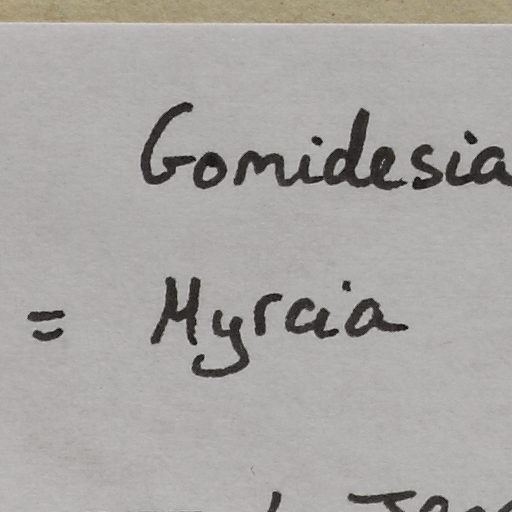 Gomidesia
= Myrcia